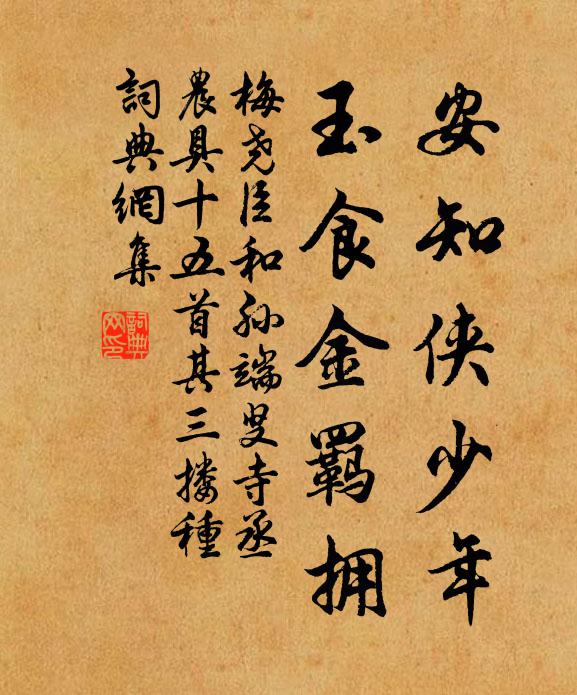 安知侠少年
玉食金羁拥
梅尧臣和孙端叟寺丞
農具十五首其三搂種
詞典網集
詞典
网印